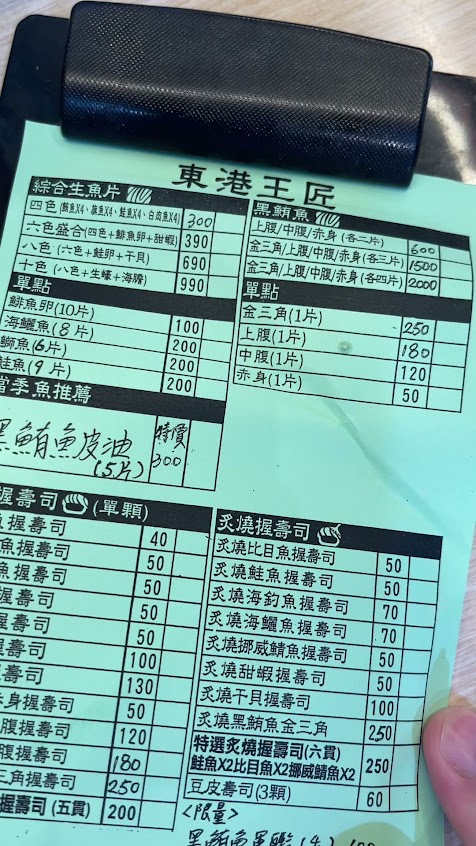 東港王匠
綜合生魚片
四色(鮪魚X4、旗魚X4、鮭魚X4、白肉魚X4) 300
六色盛合(四色+鯡魚卵+甜蝦) 390
八色(六色+鮭卵+干貝) 690
十色(八色+生蠔+海膽) 990
單點
鯡魚卵(10片) 100
海鱺魚(8片) 200
鰤魚(6片) 200
鮭魚(9片) 200
當季魚推薦
黑鮪魚皮油(5片) 特價300
黑鮪魚
上腹/中腹/赤身(各二片) 600
金三角/上腹/中腹/赤身(各三片) 1500
金三角/上腹/中腹/赤身(各四片) 2000
單點
金三角(1片) 250
上腹(1片) 180
中腹(1片) 120
赤身(1片) 50
握壽司(單顆)
魚握壽司 40
魚握壽司 50
魚握壽司 50
握壽司 50
握壽司 50
握壽司 100
握壽司 130
赤身握壽司 50
腹握壽司 120
腹握壽司 180
三角握壽司 250
握壽司(五貫) 200
炙燒握壽司
炙燒比目魚握壽司 50
炙燒鮭魚握壽司 50
炙燒海釣魚握壽司 70
炙燒海鱺魚握壽司 70
炙燒挪威鯖魚握壽司 50
炙燒甜蝦握壽司 50
炙燒干貝握壽司 100
炙燒黑鮪魚金三角 250
特選炙燒握壽司(六貫)
鮭魚X2比目魚X2挪威鯖魚X2 250
豆皮壽司(3顆) 60
<限量>